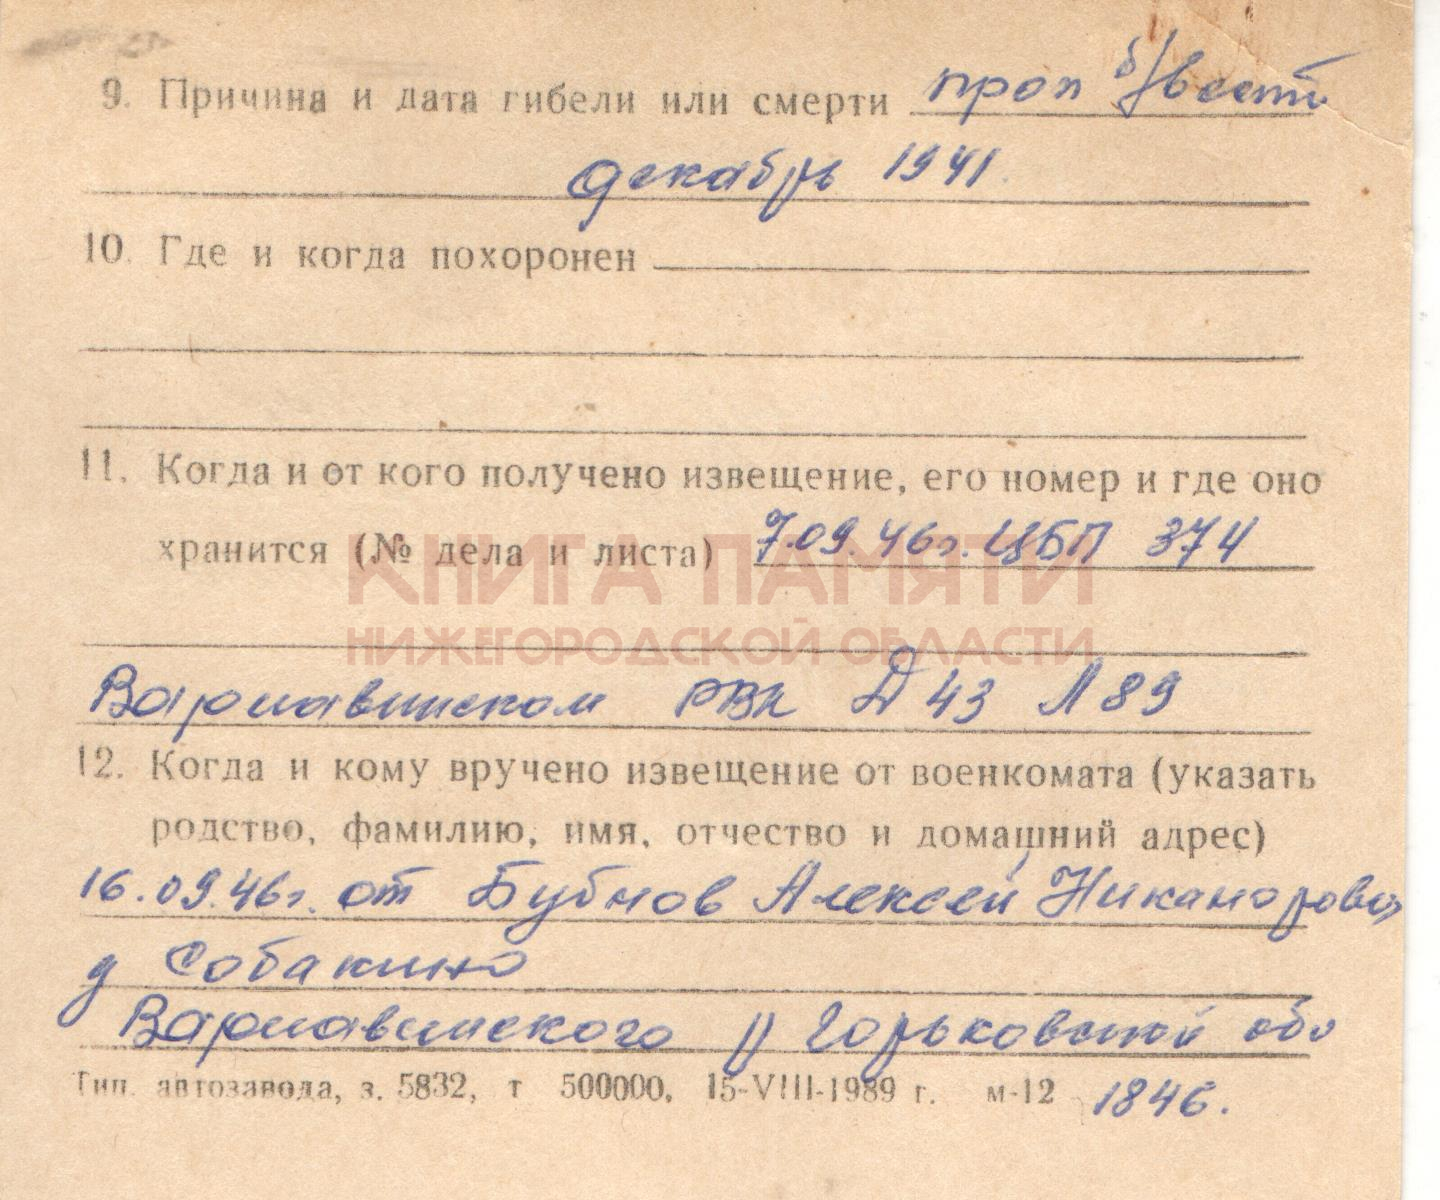 9. Причина и дата гибели или смерти проп б/вести
декабрь 1941.
10. Где и когда похоронен
11. Когда и от кого получено извещение, его номер и где оно
хранится (№ дела и листа) 7.09.46г. ЦБП 374
КНИГА ПАМЯТИ
НИЖЕГОРОДСКОЙ ОБЛАСТИ
Варнавинском РВК Д 43 Л 89
12. Когда и кому вручено извещение от военкомата (указать
родство, фамилию, имя, отчество и домашний адрес)
16.09.46г. от Бубнов Алексей Никанорович
д Собакино
Варнавинского р Горьковской обл
Тип. автозавода, з. 5832, т 500000, 15-VIII-1989 г. м-12 1846.